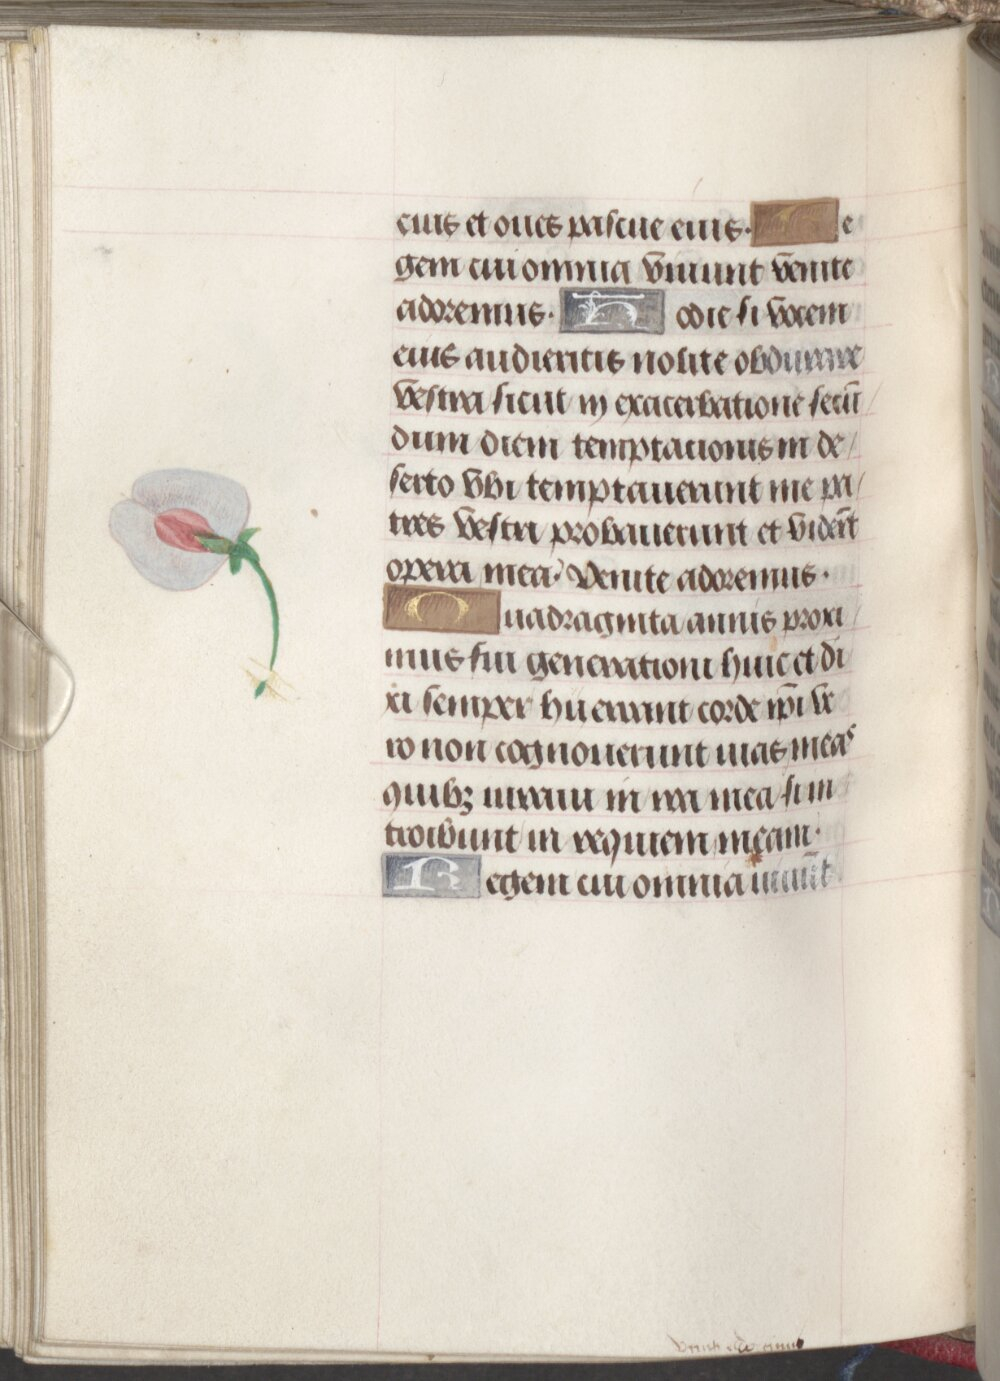 eius et oues pascue eius. Re
gem cui omnia viuunt venite
adoremus. Hodie si vocem
eius audieritis nolite obdurare
vestra sicut in exacerbatione secū
dum diem temptationis in de
serto vbi temptauerunt me pa
tres vestri probauerunt et viderūt
opera mea. Venite adoremus.
Quadraginta annis proxi
mus fui generationi huic et di
xi semper hii errant corde ip̄i ve
ro non cognouerunt uias meas
quibꝫ iuraui in ira mea si in
troibunt in requiem meam.
Regem cui omnia uiuūt